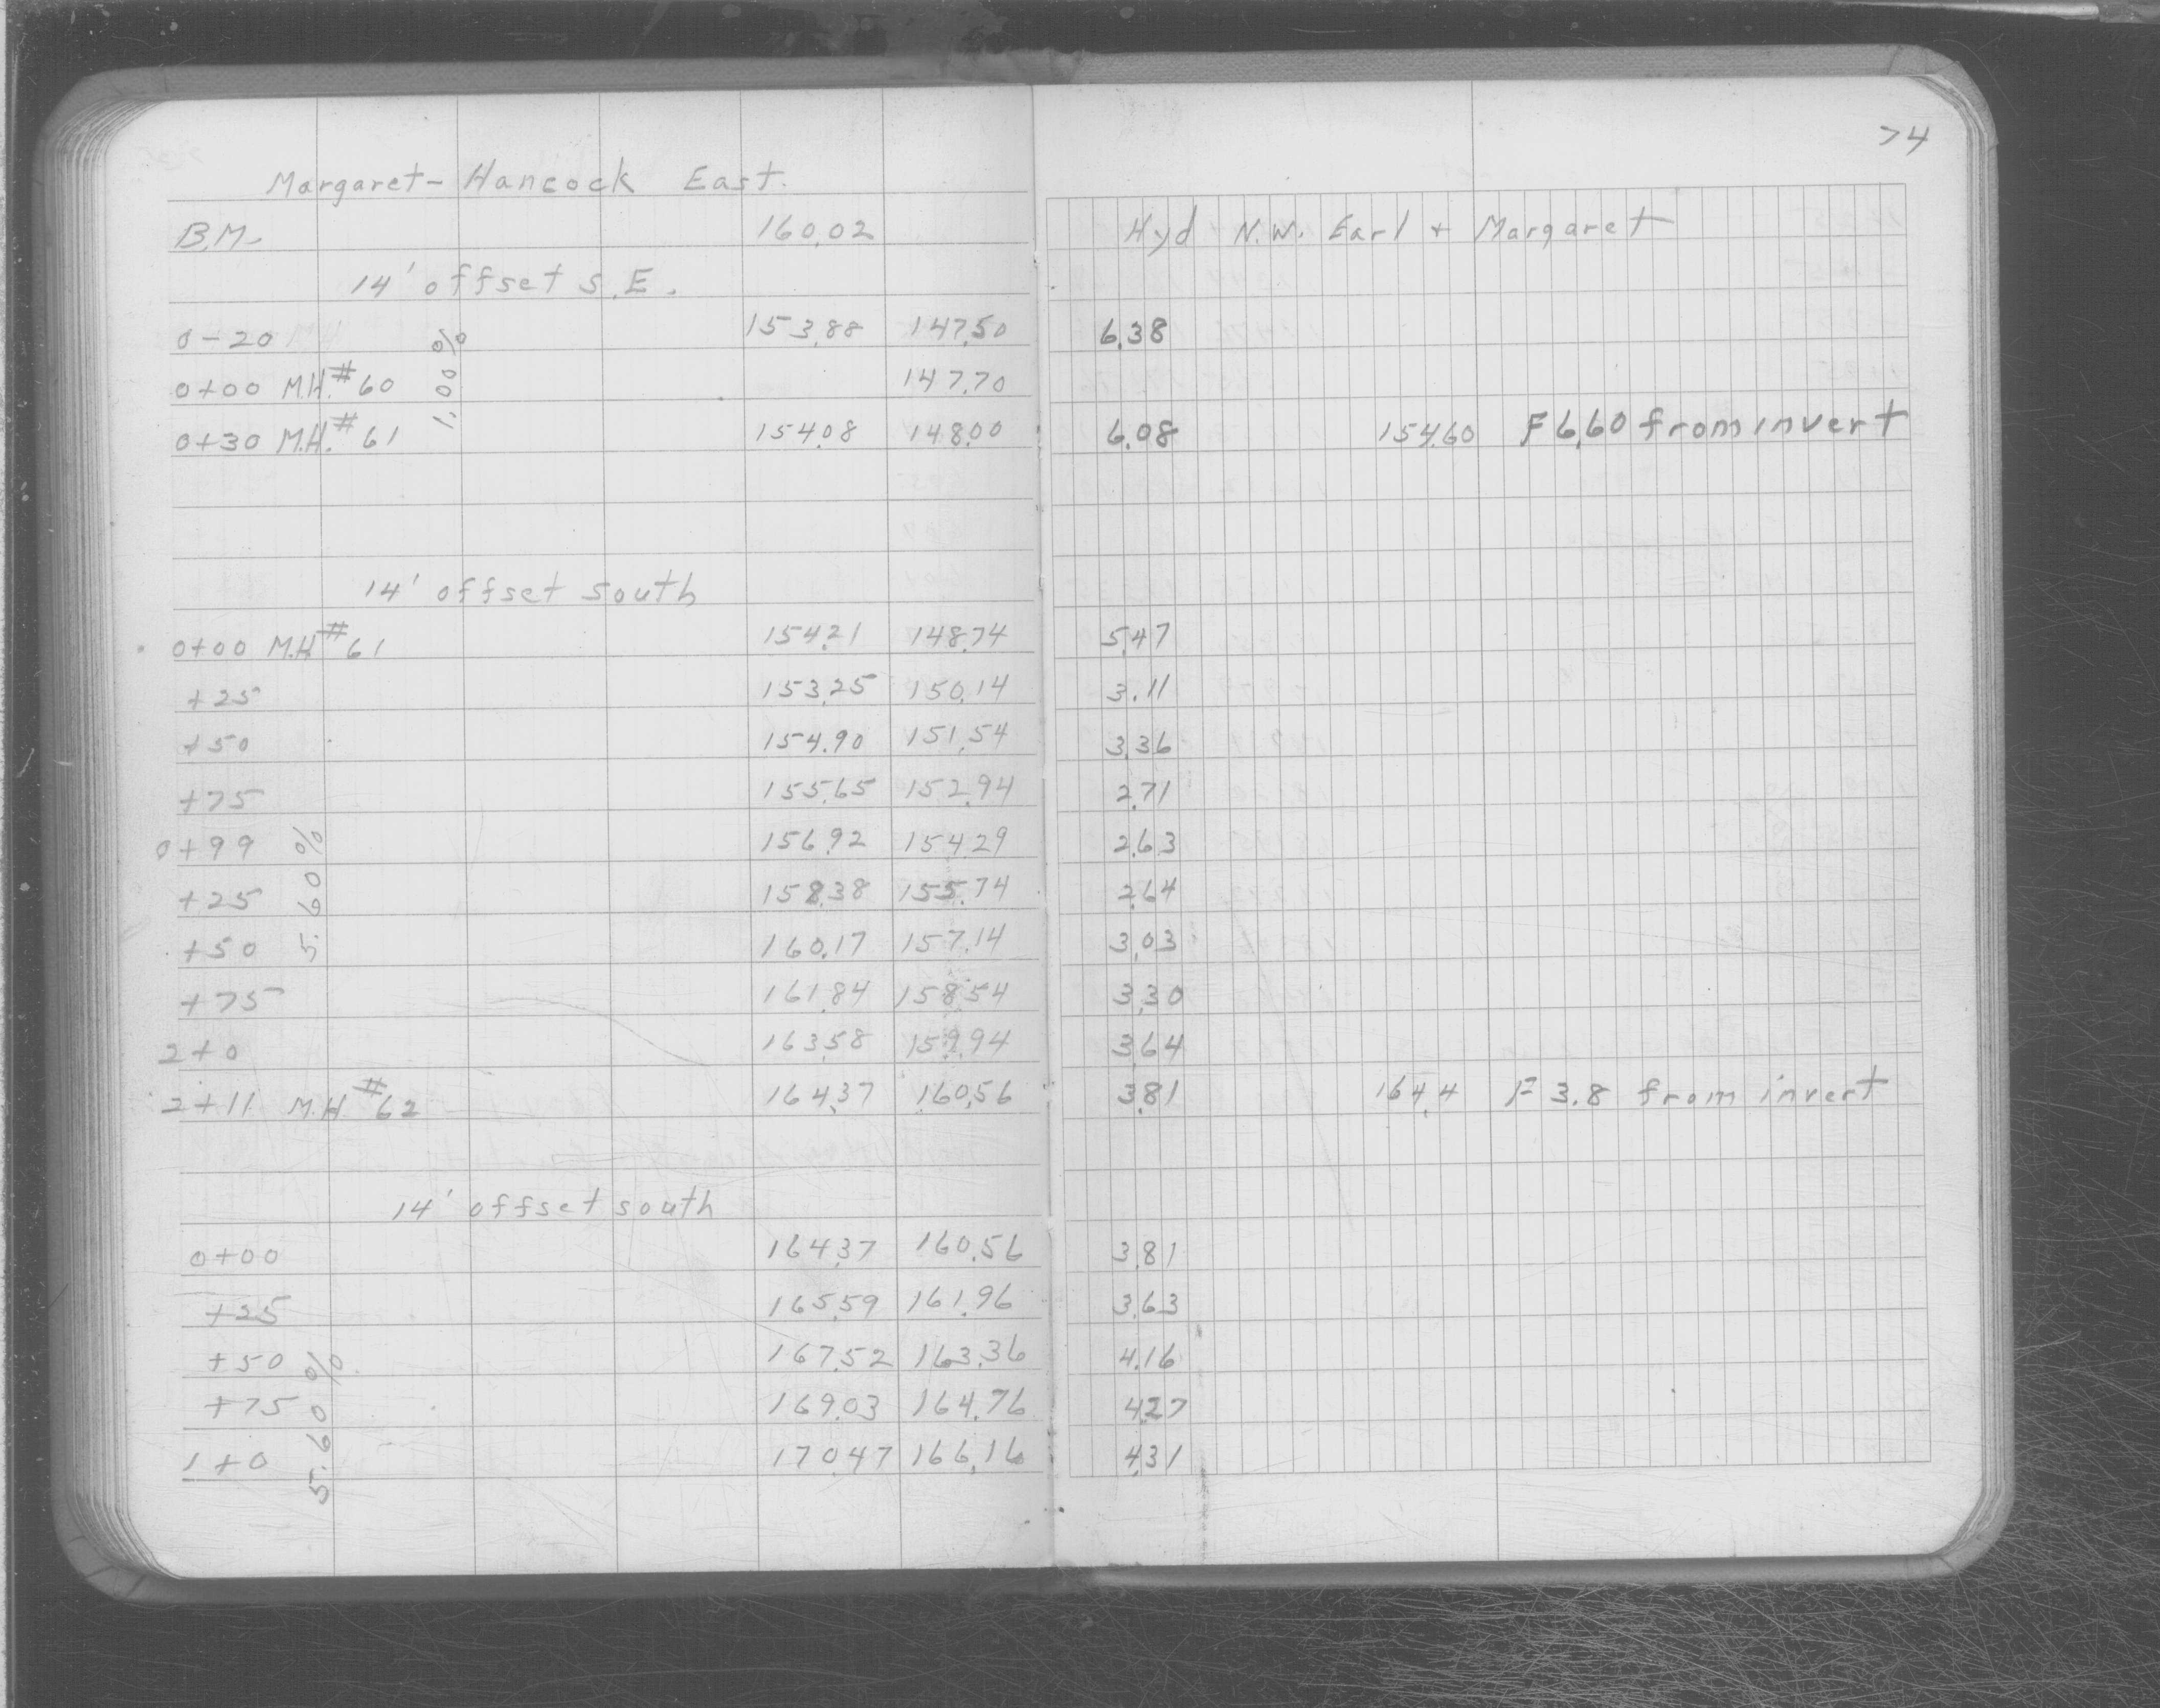 74
Margaret - Hancock East.
B.M. 160.02 Hyd N.W. Earl + Margaret
14' offset S.E.
0-20 M.H. 153.88 147.50 6.38
0+00 M.H. #60 147.70
1.00 %
0+30 M.H. #61 154.08 148.00 6.08 154.60 F 6.60 from invert
14' offset south
0+00 M.H. #61 154.21 148.74 5.47
+25 153.25 150.14 3.11
+50 154.90 151.54 3.36
+75 155.65 152.94 2.71
0+99 156.92 154.29 2.63
+25 158.38 155.74 2.64
5.60 %
+50 160.17 157.14 3.03
+75 161.84 158.54 3.30
2+0 163.58 159.94 3.64
2+11 M.H. #62 164.37 160.56 3.81 164.4 F 3.8 from invert
14' offset south
0+00 164.37 160.56 3.81
+25 165.59 161.96 3.63
+50 167.52 163.36 4.16
+75 169.03 164.76 4.27
1+0 170.47 166.16 4.31
5.60 %